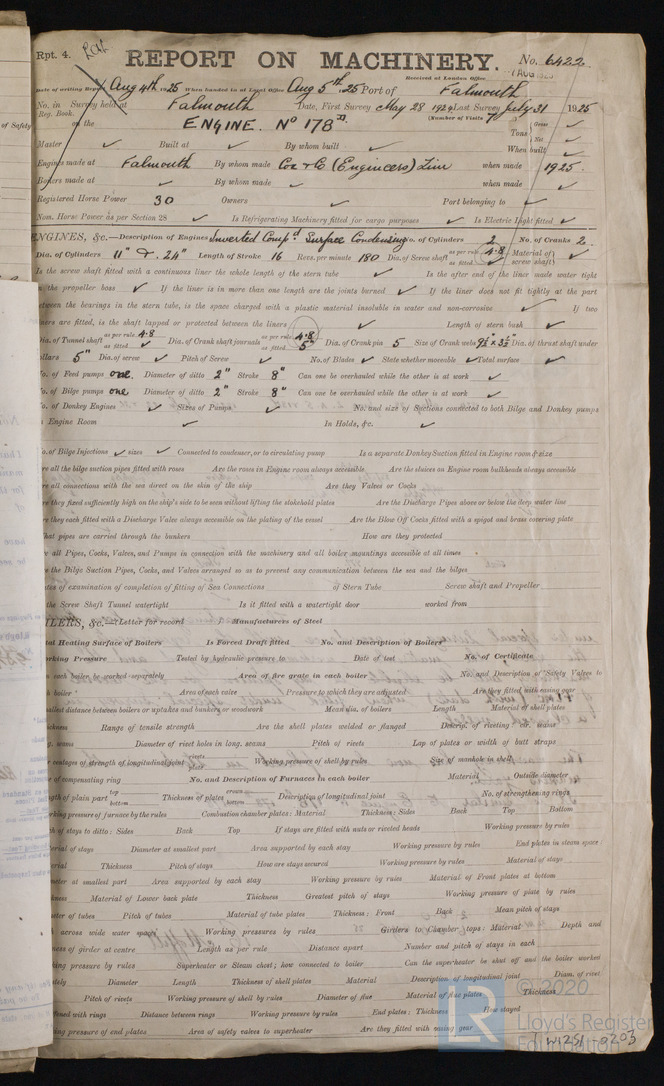 Rpt. 4.
REPORT ON MACHINERY.
No. 6422.
Received at London Office
7 AUG 1925
Date of writing Report Aug 4th 1925 When handed in at Local Office Aug 5th 25 Port of Falmouth
No. in Survey held at Falmouth Date, First Survey May 28 1925 Last Survey July 31 1925
Reg. Book. (Number of Visits 7
on the ENGINE. No 178
Tons Gross
Net
Master Built at By whom built When built
Engines made at Falmouth By whom made Cox & Co (Engineers) Lim when made 1925.
Boilers made at By whom made when made
Registered Horse Power 30 Owners Port belonging to
Nom. Horse Power as per Section 28 Is Refrigerating Machinery fitted for cargo purposes Is Electric Light fitted
ENGINES, &c.—Description of Engines Inverted Compd Surface Condensing No. of Cylinders 2 No. of Cranks 2
Dia. of Cylinders 11" & 24" Length of Stroke 16 Revs. per minute 180 Dia. of Screw shaft as per rule 4.8 as fitted Material of screw shaft
Is the screw shaft fitted with a continuous liner the whole length of the stern tube Is the after end of the liner made water tight
the propeller boss If the liner is in more than one length are the joints burned If the liner does not fit tightly at the part
between the bearings in the stern tube, is the space charged with a plastic material insoluble in water and non-corrosive If two
liners are fitted, is the shaft lapped or protected between the liners Length of stern bush
Dia. of Tunnel shaft as per rule 4.8 as fitted Dia. of Crank shaft journals as per rule 4.8 as fitted 5" Dia. of Crank pin 5 Size of Crank webs 9½ x 3½ Dia. of thrust shaft under
collars 5" Dia. of screw Pitch of Screw No. of Blades State whether moveable Total surface
No. of Feed pumps one. Diameter of ditto 2" Stroke 8" Can one be overhauled while the other is at work
No. of Bilge pumps one Diameter of ditto 2" Stroke 8" Can one be overhauled while the other is at work
No. of Donkey Engines Sizes of Pumps No. and size of Suctions connected to both Bilge and Donkey pumps
Engine Room In Holds, &c.
No. of Bilge Injections sizes Connected to condenser, or to circulating pump Is a separate Donkey Suction fitted in Engine room & size
Are all the bilge suction pipes fitted with roses Are the roses in Engine room always accessible Are the sluices on Engine room bulkheads always accessible
Are all connections with the sea direct on the skin of the ship Are they Valves or Cocks
Are they fixed sufficiently high on the ship's side to be seen without lifting the stokehold plates Are the Discharge Pipes above or below the deep water line
Are they each fitted with a Discharge Valve always accessible on the plating of the vessel Are the Blow Off Cocks fitted with a spigot and brass covering plate
What pipes are carried through the bunkers How are they protected
Are all Pipes, Cocks, Valves, and Pumps in connection with the machinery and all boiler mountings accessible at all times
Are the Bilge Suction Pipes, Cocks, and Valves arranged so as to prevent any communication between the sea and the bilges
Dates of examination of completion of fitting of Sea Connections of Stern Tube Screw shaft and Propeller
the Screw Shaft Tunnel watertight Is it fitted with a watertight door worked from
BOILERS, &c.—(Letter for record ) Manufacturers of Steel
Total Heating Surface of Boilers Is Forced Draft fitted No. and Description of Boilers
Working Pressure Tested by hydraulic pressure to Date of test No. of Certificate
each boiler be worked separately Area of fire grate in each boiler No. and Description of Safety Valves to
each boiler Area of each valve Pressure to which they are adjusted Are they fitted with easing gear
Smallest distance between boilers or uptakes and bunkers or woodwork Mean dia. of boilers Length Material of shell plates
Thickness Range of tensile strength Are the shell plates welded or flanged Descrip. of riveting: cir. seams
long. seams Diameter of rivet holes in long. seams Pitch of rivets Lap of plates or width of butt straps
percentages of strength of longitudinal joint rivets Working pressure of shell by rules Size of manhole in shell
Size of compensating ring No. and Description of Furnaces in each boiler Material Outside diameter
Length of plain part top bottom Thickness of plates crown bottom Description of longitudinal joint No. of strengthening rings
Working pressure of furnace by the rules Combustion chamber plates: Material Thickness: Sides Back Top Bottom
Pitch of stays to ditto: Sides Back Top If stays are fitted with nuts or riveted heads Working pressure by rules
Material of stays Diameter at smallest part Area supported by each stay Working pressure by rules End plates in steam space:
Material Thickness Pitch of stays How are stays secured Working pressure by rules Material of stays
Diameter at smallest part Area supported by each stay Working pressure by rules Material of Front plates at bottom
Thickness Material of Lower back plate Thickness Greatest pitch of stays Working pressure of plate by rules
Diameter of tubes Pitch of tubes Material of tube plates Thickness: Front Back Mean pitch of stays
Pitch across wide water spaces Working pressures by rules Girders to Chamber tops: Material Depth and
thickness of girder at centre Length as per rule Distance apart Number and pitch of stays in each
Working pressure by rules Superheater or Steam chest; how connected to boiler Can the superheater be shut off and the boiler worked
separately Diameter Length Thickness of shell plates Material Description of longitudinal joint Diam. of rivet
Pitch of rivets Working pressure of shell by rules Diameter of flue Material of flue plates Thickness
stiffened with rings Distance between rings Working pressure by rules End plates: Thickness How stayed
Working pressure of end plates Area of safety valves to superheater Are they fitted with easing gear
© 2020
Lloyd's Register
Foundation
W1251-0203